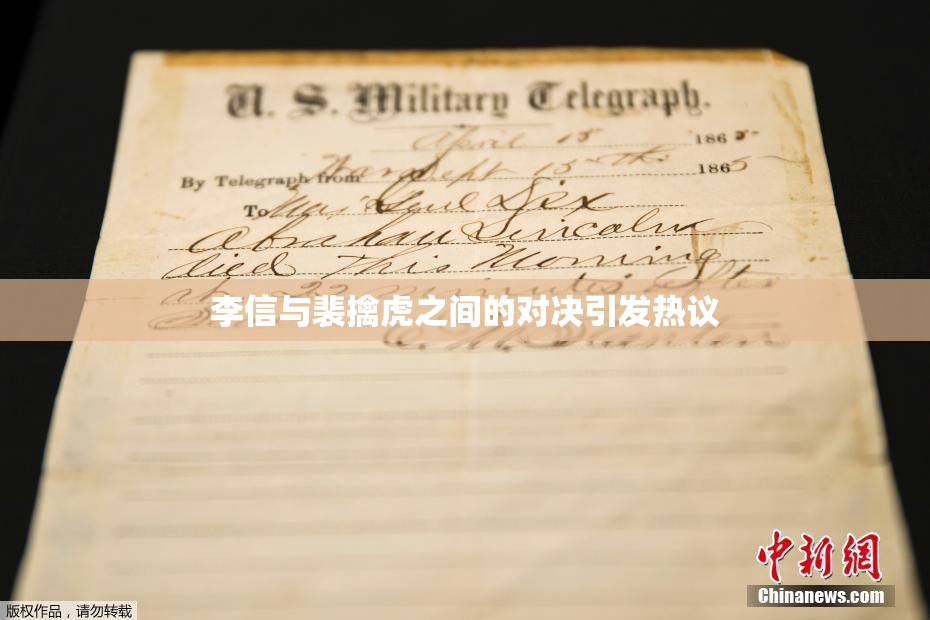 U. S. Military Telegraph.
April 15 1865
By Telegraph from War Dept 15th 1865
To Maj Genl Dix
Abraham Lincoln
died This Morning
at 22 minutes after
李信与裴擒虎之间的对决引发热议
中新網
Chinanews.com
版权作品，请勿转载